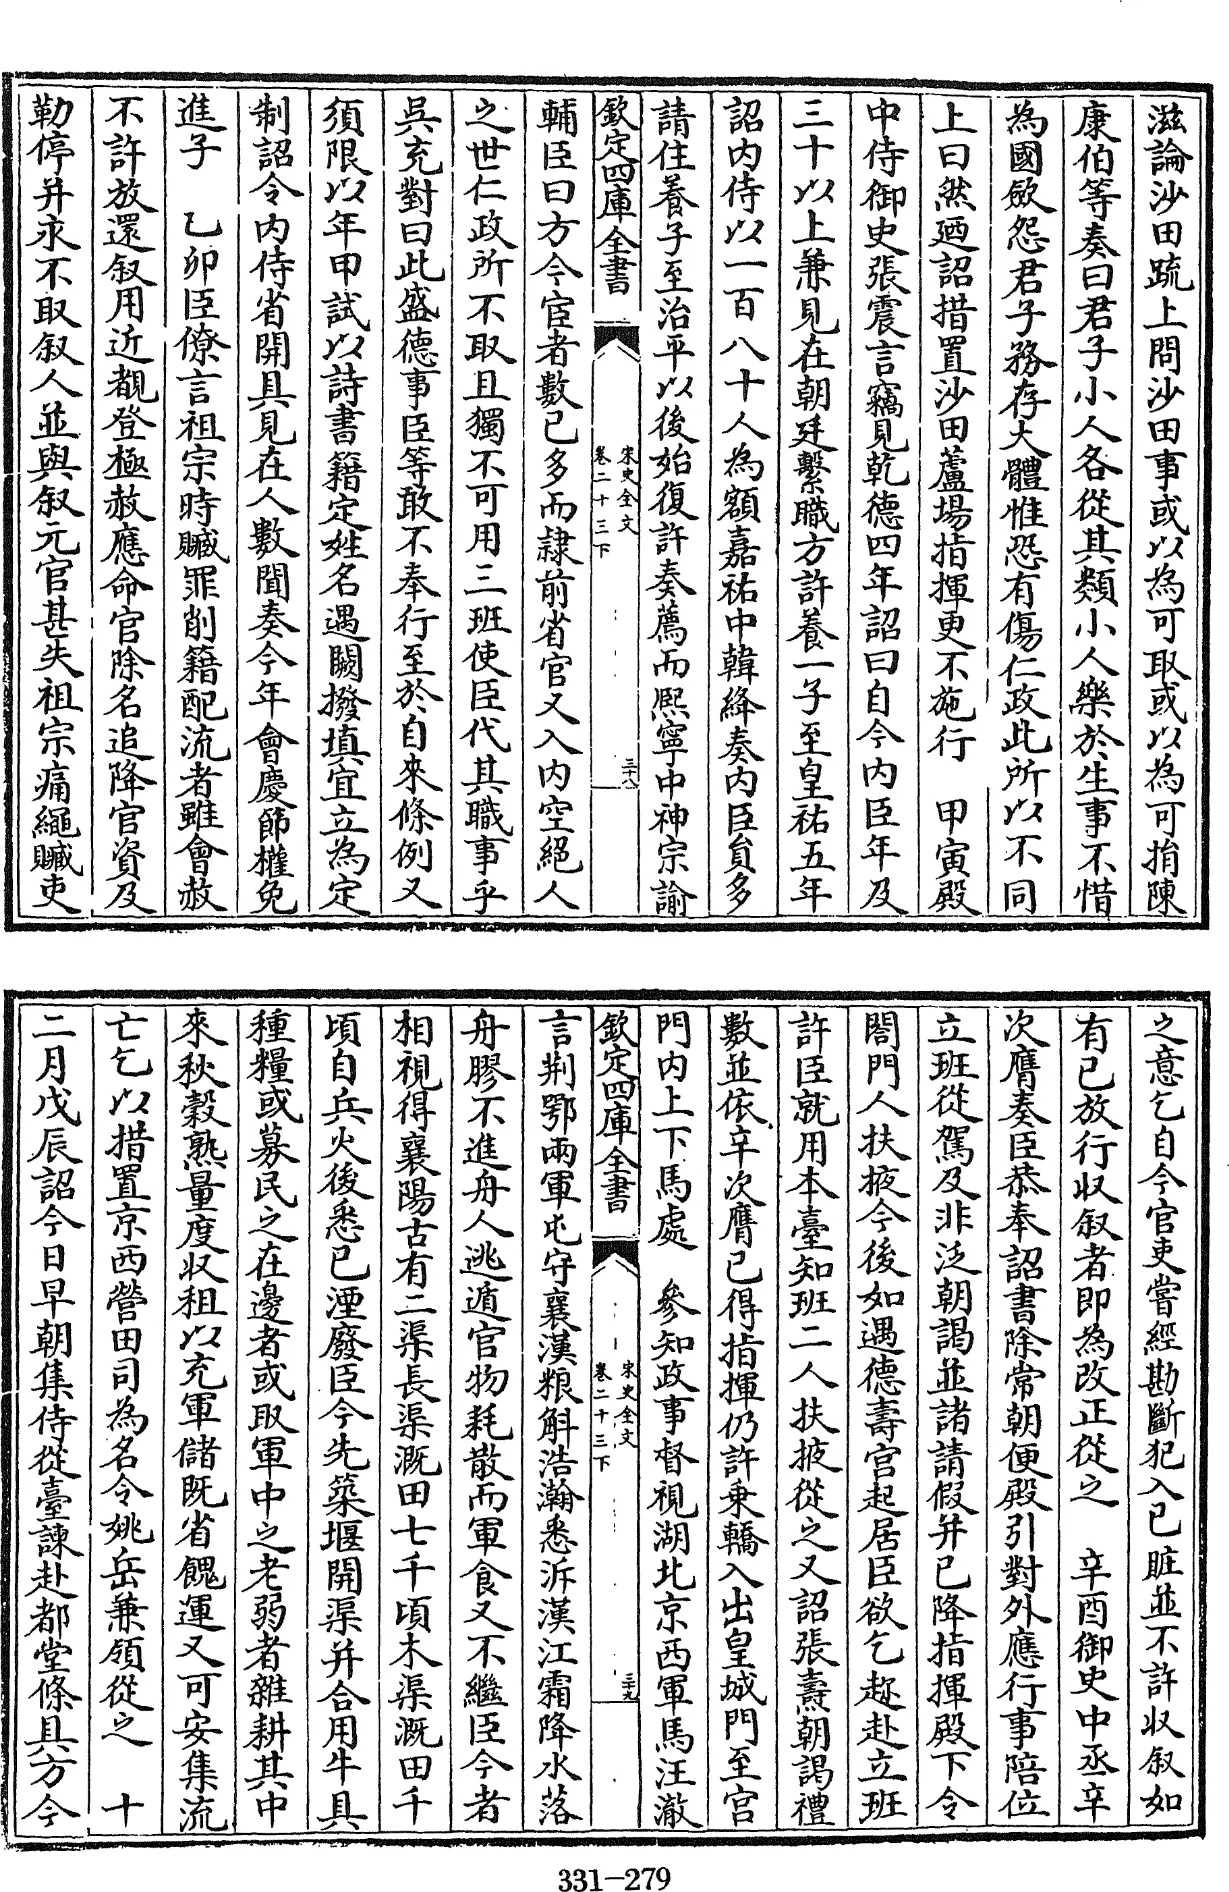 滋論沙田疏上問沙田事或以為可取或以為可捐陳
康伯等奏曰君子小人各從其類小人樂於生事不惜
為國斂怨君子務存大體惟恐有傷仁政此所以不同
上曰然廼詔措置沙田蘆場指揮更不施行　甲寅殿
中侍御史張震言竊見乾德四年詔曰自今內臣年及
三十以上兼見在朝廷繫職方許養一子至皇祐五年
詔內侍以一百八十人為額嘉祐中韓絳奏內臣員多
請住養子至治平以後始復許奏薦而熙寧中神宗諭
欽定四庫全書　宋史全文卷二十三下　三十八
輔臣曰方今宦者數已多而隷前省官又入內空絕人
之世仁政所不取且獨不可用三班使臣代其職事乎
吳充對曰此盛德事臣等敢不奉行至於自來條例又
須限以年甲試以詩書籍定姓名遇闕撥填宜立為定
制詔令內侍省開具見在人數聞奏今年會慶節權免
進子　乙卯臣僚言祖宗時贓罪削籍配流者雖會赦
不許放還叙用近覩登極赦應命官除名追降官資及
勒停并永不取叙人並與叙元官甚失祖宗痛繩贓吏
之意乞自今官吏嘗經勘斷犯入已賍並不許收叙如
有已放行收叙者即為改正從之　辛酉御史中丞辛
次膺奏臣恭奉詔書除常朝便殿引對外應行事陪位
立班從駕及非泛朝謁並諸請假并已降指揮殿下令
閤門人扶掖今後如遇德壽宮起居臣欲乞趂赴立班
許臣就用本臺知班二人扶掖從之又詔張壽朝謁禮
數並依辛次膺已得指揮仍許乗轎入出皇城門至宮
門內上下馬處　參知政事督視湖北京西軍馬汪澈
欽定四庫全書　宋史全文卷二十三下　三十九
言荆鄂兩軍屯守襄漢粮斛浩瀚悉泝漢江霜降水落
舟膠不進舟人逃遁官物耗散而軍食又不繼臣今者
相視得襄陽古有二渠長渠溉田七千頃木渠溉田千
頃自兵火後悉已湮廢臣今先築堰開渠并合用牛具
種糧或募民之在邊者或取軍中之老弱者雜耕其中
來秋穀熟量度收租以充軍儲既省餽運又可安集流
亡乞以措置京西營田司為名令姚岳兼領從之　十
二月戊辰詔今日早朝集侍從臺諫赴都堂條具方今
331-279